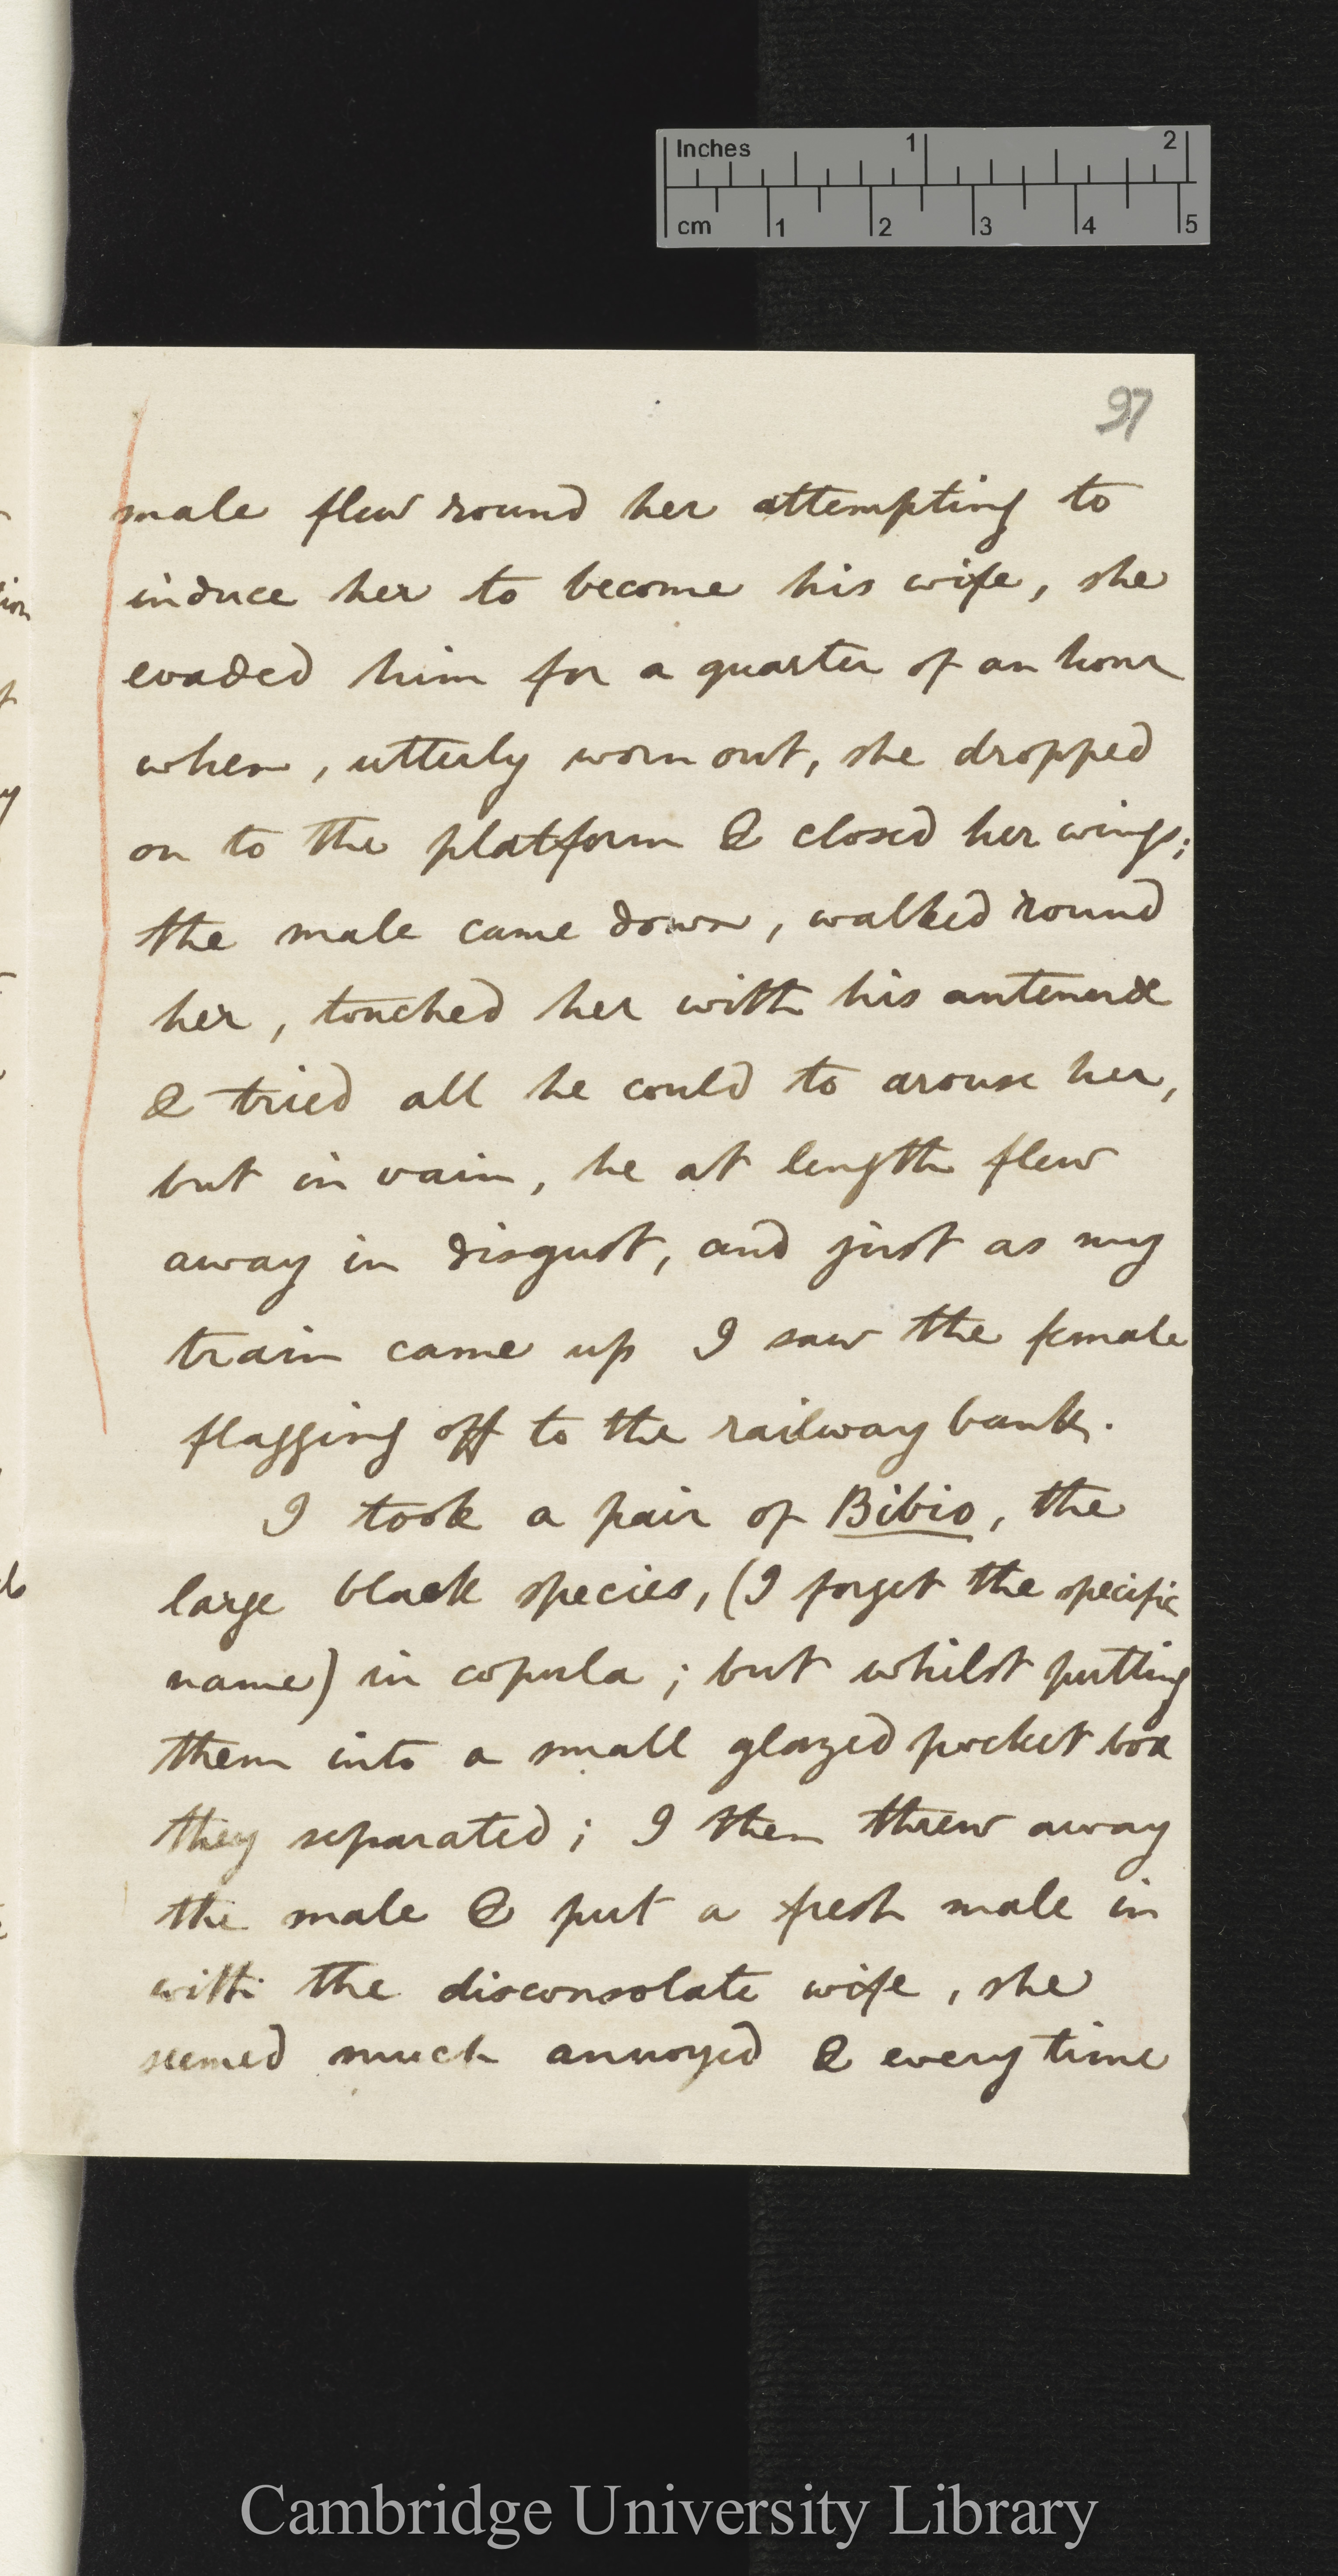 Inches 1 2
cm 1 2 3 4 5
97
male flew round her attempting to
induce her to become his wife, she
evaded him for a quarter of an hour
when, utterly worn out, she dropped
on to the platform & closed her wings;
the male came down, walked round
her, touched her with his antennæ
& tried all he could to arouse her,
but in vain, he at length flew
away in disgust, and just as my
train came up I saw the female
flagging off to the railway bank.
I took a pair of Bibio, the
large black species, (I forget the specific
name) in copula; but whilst putting
them into a small glazed pocket box
they separated; I then threw away
the male & put a fresh male in
with the disconsolate wife, she
seemed much annoyed & every time
Cambridge University Library